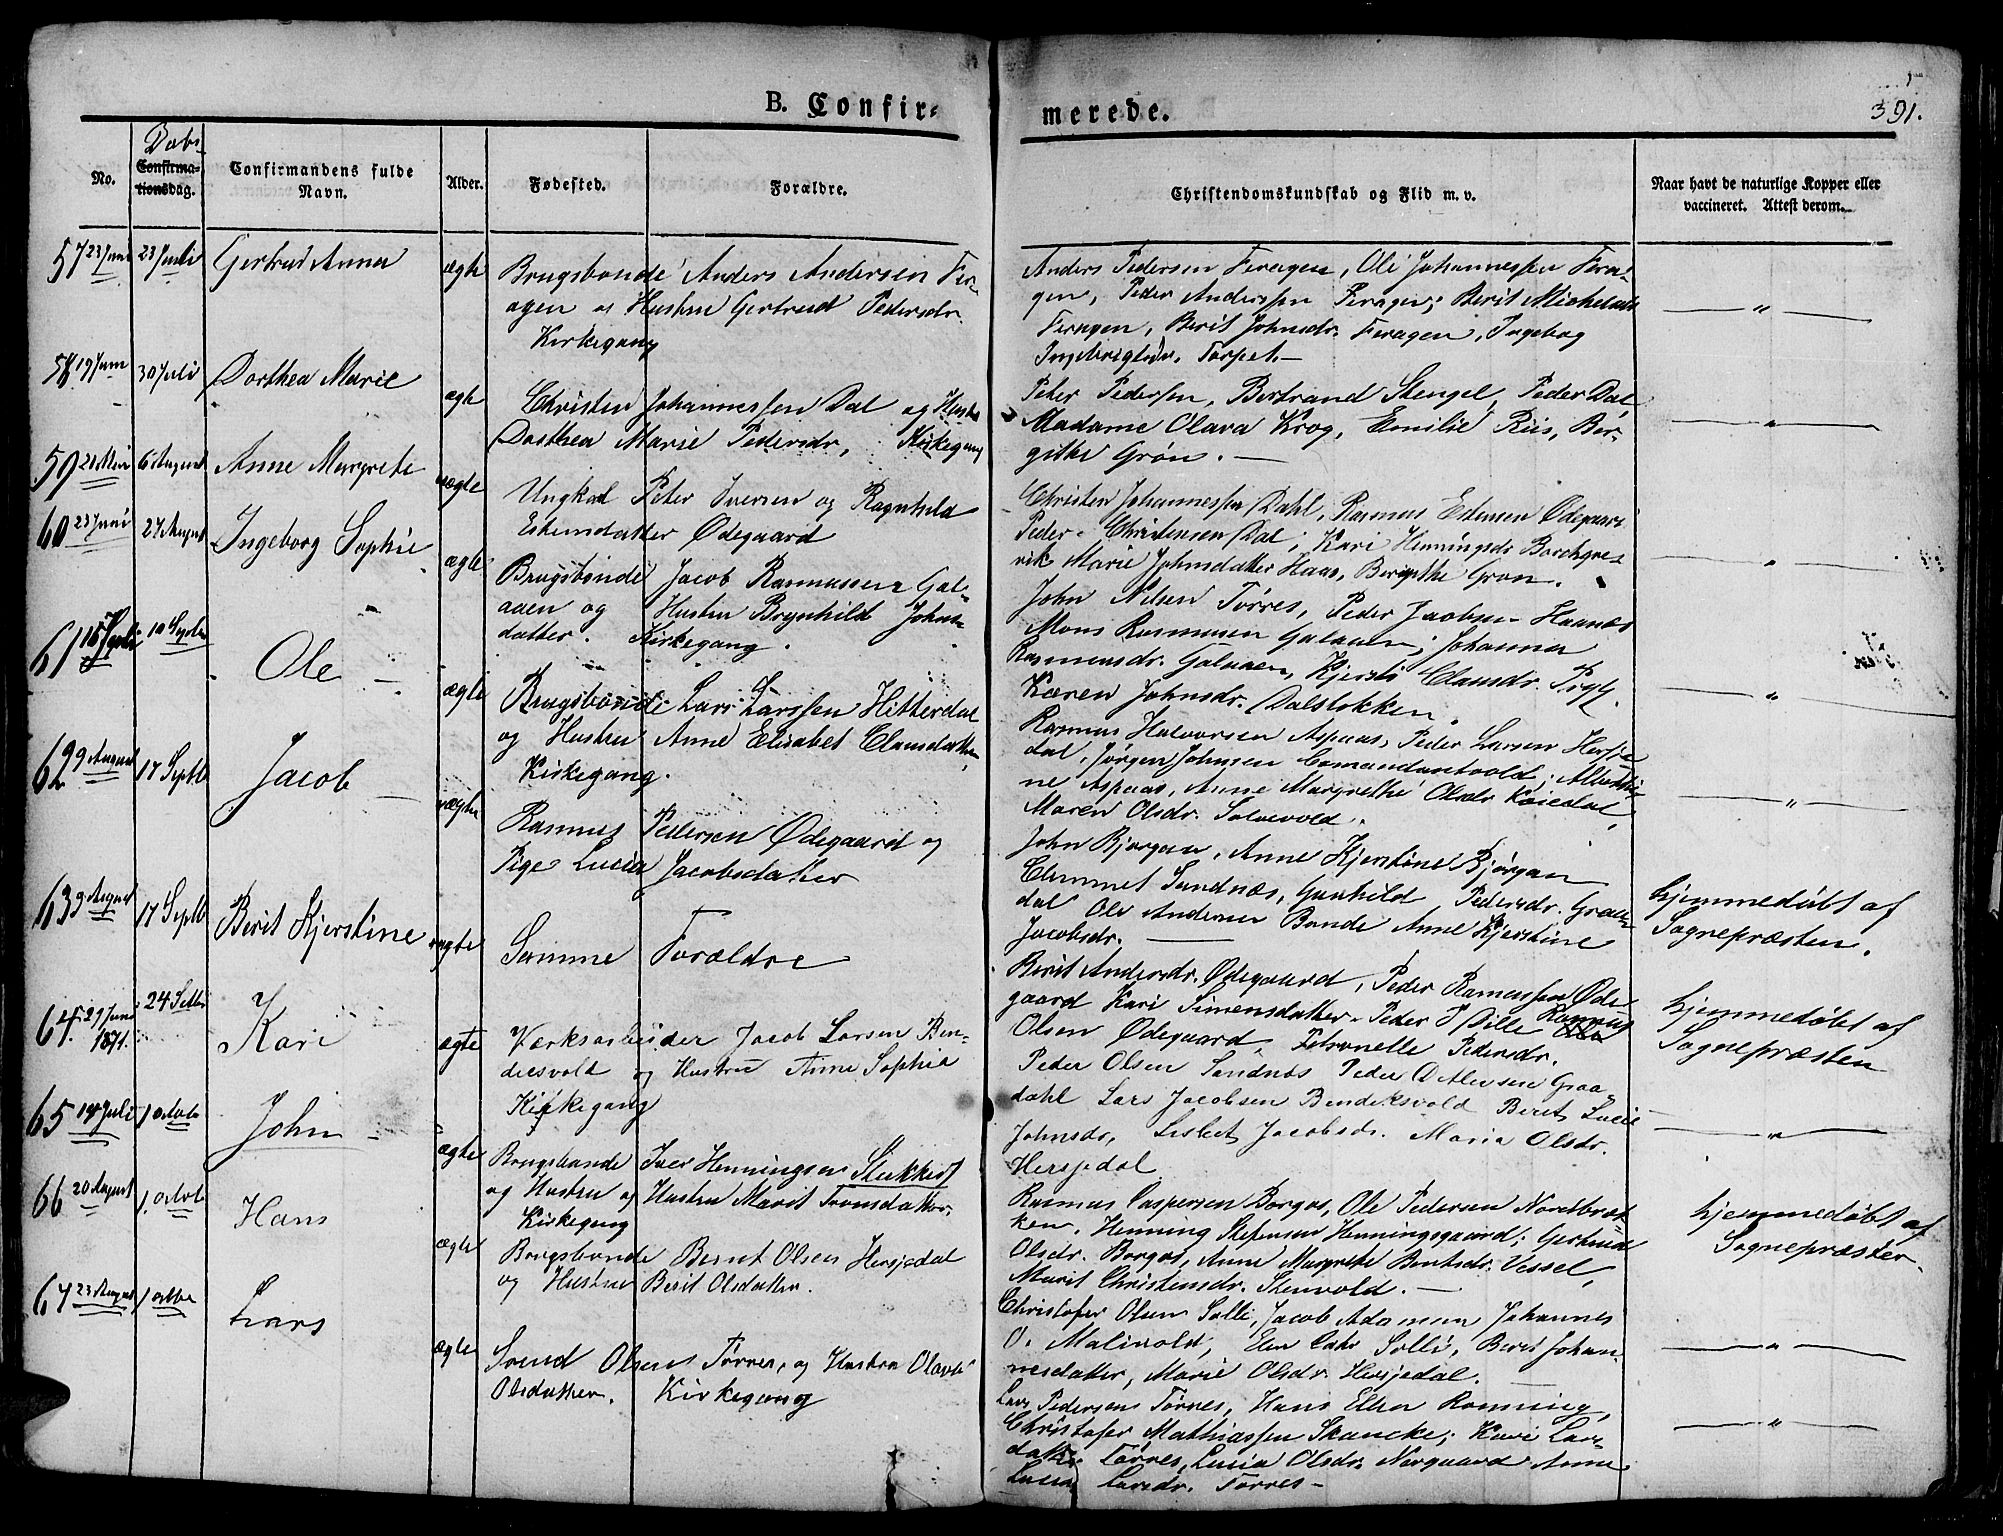 B. Confir-
merede.
391.
No.
Døbs-
Confirma-
tionsdag.
Confirmandens fulde
Navn.
Alder.
Fødested.
Forældre.
Christendomskundskab og Flid m. v.
Naar havt de naturlige Kopper eller
vaccineret. Attest derom.
57 23 Juni 23 Juli Gertrud Anna ægte
Brugsbonde Anders Andersen Fer-
agen og Hustru Gertrud Pedersdr.
Kirkegang
Anders Pedersen Feragen, Ole Johannessen Fera-
gen, Peder Anderssen Feragen; Berit Michelsdr
Feragen, Berit Johnsdr. Feragen, Ingebog
Ingebrigtsdr. Torpet.—
— " —
58 19 Juni 30 Juli Dorthea Marie ægte
Christen Johannessen Dal og Hustru
Dorthea Marie Pedersdr, Kirkegang
Peter Pedersen, Bertrand Stengel, Peder Dal
Madame Olava Krog, Emilie Riis, Bir-
githe Grøn. —
— " —
59 21 Mai 6 August Anne Margrete uægte
Ungkarl Peter Iversen og Ragnhild
Estensdatter Ødegaard
Christen Johannessen Dahl, Rasmus Estensen Ødegaard
Peder Christensen Dal; Kari Henningsdr Borchgre-
vik Marie Johnsdatter Haas, Birgithe Grøn.
— " —
60 23 Juni 27 August Ingeborg Sophie ægte
Brugsbonde Jacob Rasmussen Gal-
aaen og Hustru Brynhild Johns-
datter. Kirkegang.
John Nilsen Tørres, Peder Jacobsen Haanæs
Mons Rasmusen Galaaen; Johanna
Rasmusdr. Galaaen, Kjersti Clausdr. Prytz.
Karen Johnsdr. Dalsløkken.
— " —
61 18 Juli 10 Septbr Ole — ægte
Brugsbonde Lars Larssen Hitterdal
og Hustru Anne Elisabet Clausdatter,
Kirkegang.
Rasmus Halvorsen Aspaas, Peder Larsen Hitter-
dal, Jørgen Johnsen Comandantvold; Albertin-
ne Aspaas, Anne Margrethe Olsdr Koiedal,
Maren Olsdr. Solvevold.
— " —
62 9 August 17 Septb Jacob — uægte
Rasmus Pedersen Ødegaard og
Pige Lucia Jacobsdatter
John Bjørgan, Anne Kjerstine Bjørgan
Clemmet Sundnæs, Gunhild Pedersdr. Graa-
dal Ole Andersen Bonde Anne Kjerstine
Jacobsdr. —
hjemmedøbt af
Sognepræsten.
63 9 August 17 Septb Berit Kjerstine uægte
Samme Forældre
Berit Andersdr. Ødegaard, Peder Rasmussen Øde-
gaard Kari Simensdatter. Peder P Dille Rasmus
Olsen Ødegaard, Petronelle Pedersdr.
hjemmedøbt af
Sognepræsten
64. 29 Juni 1871. 24 Setbr Kari ægte
Værksarbeider Jacob Larsen Ben-
dicsvold og Hustru Anne Sophia
Kirkegang
Peder Olsen Sandnes Peder Ditlevsen Graa-
dahl Lars Jacobsen Bendiksvold Beret Lucie
Johnsdr, Lisbet Jacobsdr. Maria Olsdr.
Hersjedal
— " —
65 14 Juli 1 Octob John — ægte
Brugsbonde Iver Henningsen Stikkest
og Hustru og Hustru Marit Tronsdatter.
Kirkegang
Rasmus Caspersen Borgos, Ole Pedersen Nordbræk-
ken, Henning Stefensen Henningsgaard; Gertrud
Olsdr. Borgos, Anne Margrete Berntsdr. Vessel,
Marit Christensdr. Stenvold. —
hjemmedøbt af
Sognepræsten.
66 20 August 1. Octob Hans ægte
Brugsbonde Bernt Olsen Hersjedal
og Hustru Berit Olsdatter.
Christofer Olsen Solli, Jacob Adamsen Johannes
O. Malivold, Hans Solli, Berit Johan-
nesdatter, Marie Olsdr. Hersjedal. —
— " —
67 23 August 1 octbr Lars ægte
Svend Olsen Tørres, og Hustru Olava
Olsdatter. Kirkegang
Lars Pedersen Tørres, Hans Ellen Rønning,
Christofer Mathiassen Skancke; Kari Lars-
datter Tørres, Lucia Olsdr Norgaard Anne
Lucia Larsdr. Tørres —
— " —